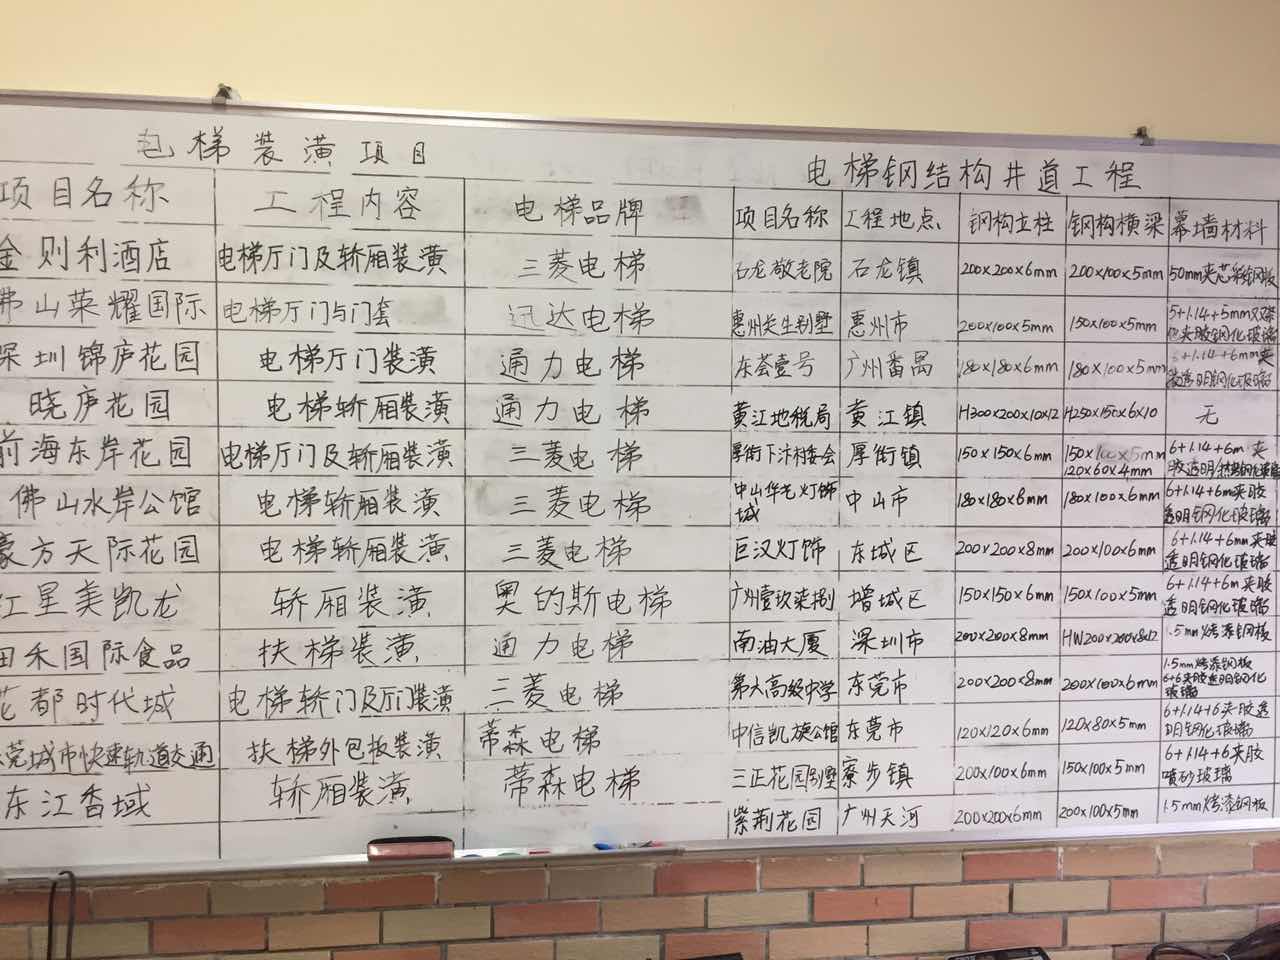 电梯装潢项目
项目名称 工程内容 电梯品牌
金则利酒店 电梯厅门及轿厢装潢 三菱电梯
佛山荣耀国际 电梯厅门与门套 迅达电梯
深圳锦庐花园 电梯厅门装潢 通力电梯
晓庐花园 电梯轿厢装潢 通力电梯
前海东岸花园 电梯厅门及轿厢装潢 三菱电梯
佛山水岸公馆 电梯轿厢装潢 三菱电梯
豪方天际花园 电梯轿厢装潢 三菱电梯
红星美凯龙 轿厢装潢 奥的斯电梯
田禾国际食品 扶梯装潢 通力电梯
花都时代城 电梯轿门及厅门装潢 三菱电梯
莞城市快速轨道交通 扶梯外包板装潢 蒂森电梯
东江香域 轿厢装潢 蒂森电梯
电梯钢结构井道工程
项目名称 工程地点 钢构立柱 钢构横梁 幕墙材料
石龙敬老院 石龙镇 200×200×6mm 200×100×5mm 50mm夹芯彩钢板
惠州长生别墅 惠州市 200×100×5mm 150×100×5mm 5+1.14+5mm双
夹胶钢化玻璃
东荟壹号 广州番禺 180×180×6mm 180×100×5mm 6+1.14+6mm夹
胶透明钢化玻璃
黄江地税局 黄江镇 H300×200×10×12 H250×150×6×10 无
厚街下汴村委会 厚街镇 150×150×6mm 150×100×5mm 6+1.14+6m夹
120×60×4mm 胶透明钢化玻璃
中山华艺灯饰 中山市 180×180×6mm 180×100×6mm 6+1.14+6m夹胶
城 透明钢化玻璃
巨汉灯饰 东城区 200×200×8mm 200×100×6mm 6+1.14+6mm夹胶
透明钢化玻璃
广州壹玖柒捌 增城区 150×150×6mm 150×100×5mm 6+1.14+6m夹胶
透明钢化玻璃
南油大厦 深圳市 200×200×8mm HW200×200×8×12 1.5mm烤漆钢板
第六高级中学 东莞市 200×200×8mm 200×100×6mm 1.5mm烤漆钢板
6+6夹胶透明钢化
玻璃
中信凯旋公馆 东莞市 120×120×6mm 120×80×5mm 6+1.14+6夹胶透
明钢化玻璃
三正花园别墅 寮步镇 200×100×6mm 150×100×5mm 6+1.14+6夹胶
喷砂玻璃
紫荆花园 广州天河 200×200×6mm 200×100×5mm 1.5mm烤漆钢板